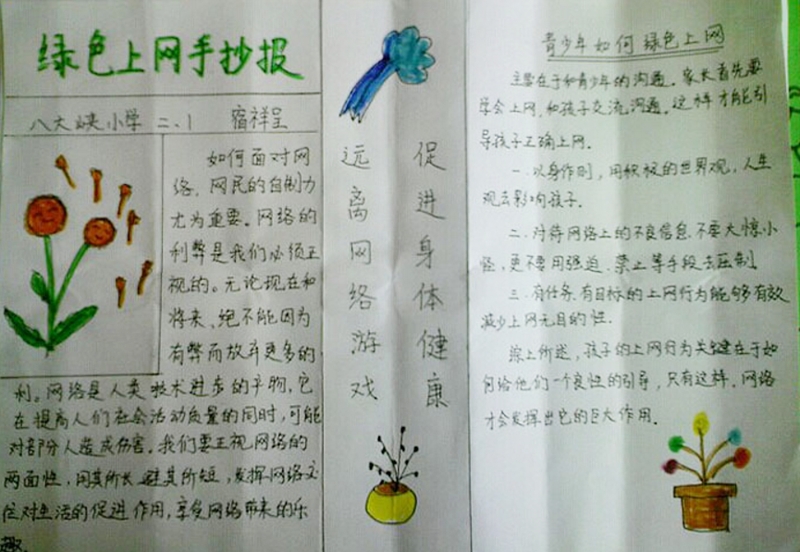 绿色上网手抄报
八大峡小学 二、1 宿祥呈
如何面对网
络，网民的自制力
尤为重要。网络的
利弊是我们必须正
视的。无论现在和
将来，绝不能因为
有弊而放弃更多的
利。网络是人类技术进步的产物，它
在提高人们社会活动质量的同时，可能
对部分人造成伤害。我们要正视网络的
两面性，用其所长，避其所短，发挥网络文
化对生活的促进作用，享受网络带来的乐
趣。
远离网络游戏
促进身体健康
青少年如何绿色上网
主要在于和青少年的沟通。家长首先要
学会上网，和孩子交流沟通。这样才能引
导孩子正确上网。
一.以身作则，用积极的世界观，人生
观去影响孩子.
二.对待网络上的不良信息.不要大惊小
怪，更不要用强迫.禁止等手段去压制.
三.有任务.有目标的上网行为能够有效
减少上网无目的性.
综上所述，孩子的上网行为关键在于如
何给他们一个良性的引导，只有这样.网络
才会发挥出它的巨大作用.